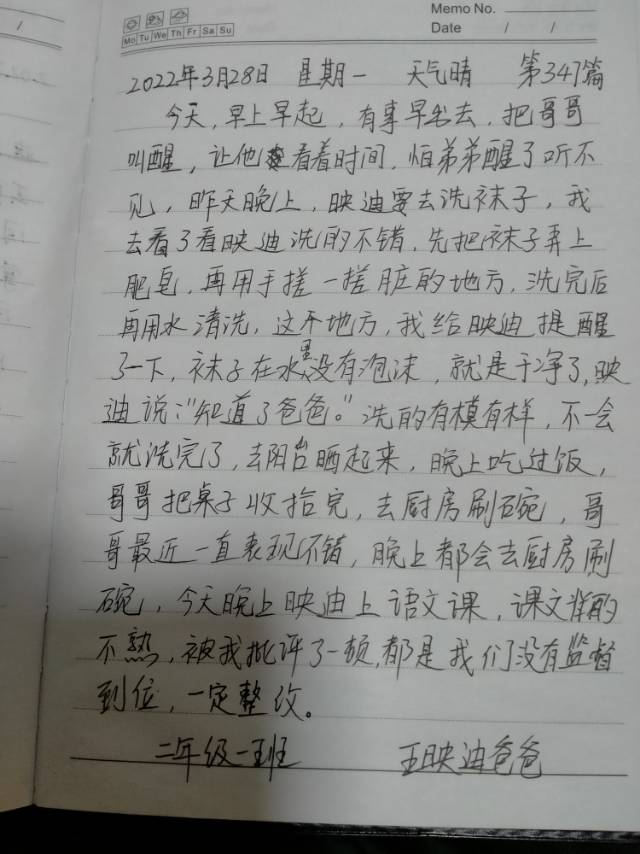 Memo No.
Mo Tu We Th Fr Sa Su
Date / /
2022年3月28日 星期一 天气晴 第347篇
今天,早上早起,有事早出去,把哥哥
叫醒,让他看着时间,怕弟弟醒了听不
见,昨天晚上,映迪要去洗袜子,我
去看了看映迪洗的不错,先把袜子弄上
肥皂,再用手搓一搓脏的地方,洗完后
再用水清洗,这个地方,我给映迪提醒
了一下,袜子在水里没有泡沫,就是干净了,映
迪说:“知道了爸爸。”洗的有模有样,不一会
就洗完了,去阳台晒起来,晚上吃过饭,
哥哥把桌子收拾完,去厨房刷碗,哥
哥最近一直表现不错,晚上都会去厨房刷
碗,今天晚上映迪上语文课,课文背的
不熟,被我批评了一顿,都是我们没有监督
到位,一定整改。
二年级一班 王映迪爸爸